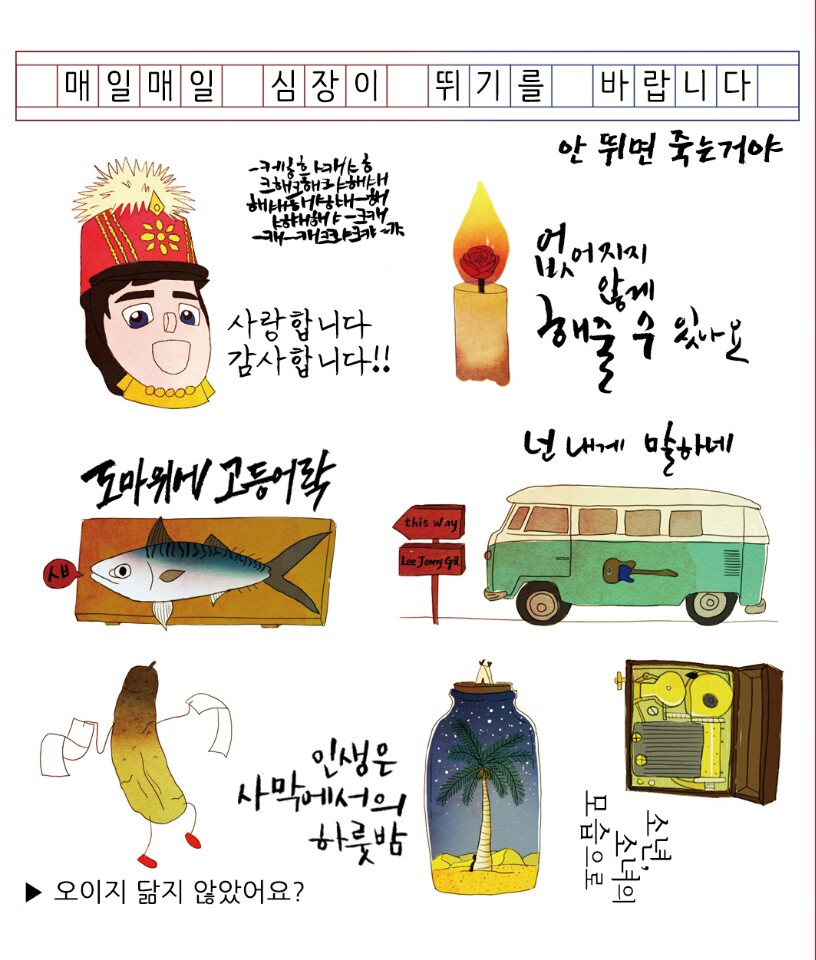 매일매일 심장이 뛰기를 바랍니다
안 뛰면 죽는거야
없어지지
않게
해줄 수 있나요
사랑합니다
감사합니다!!
넌 내게 말하네
도마위에 고등어락
this way
Lee Jeong Gil
인생은
사막에서의
하룻밤
소년,
소녀의
모습으로
▶ 오이지 닮지 않았어요?